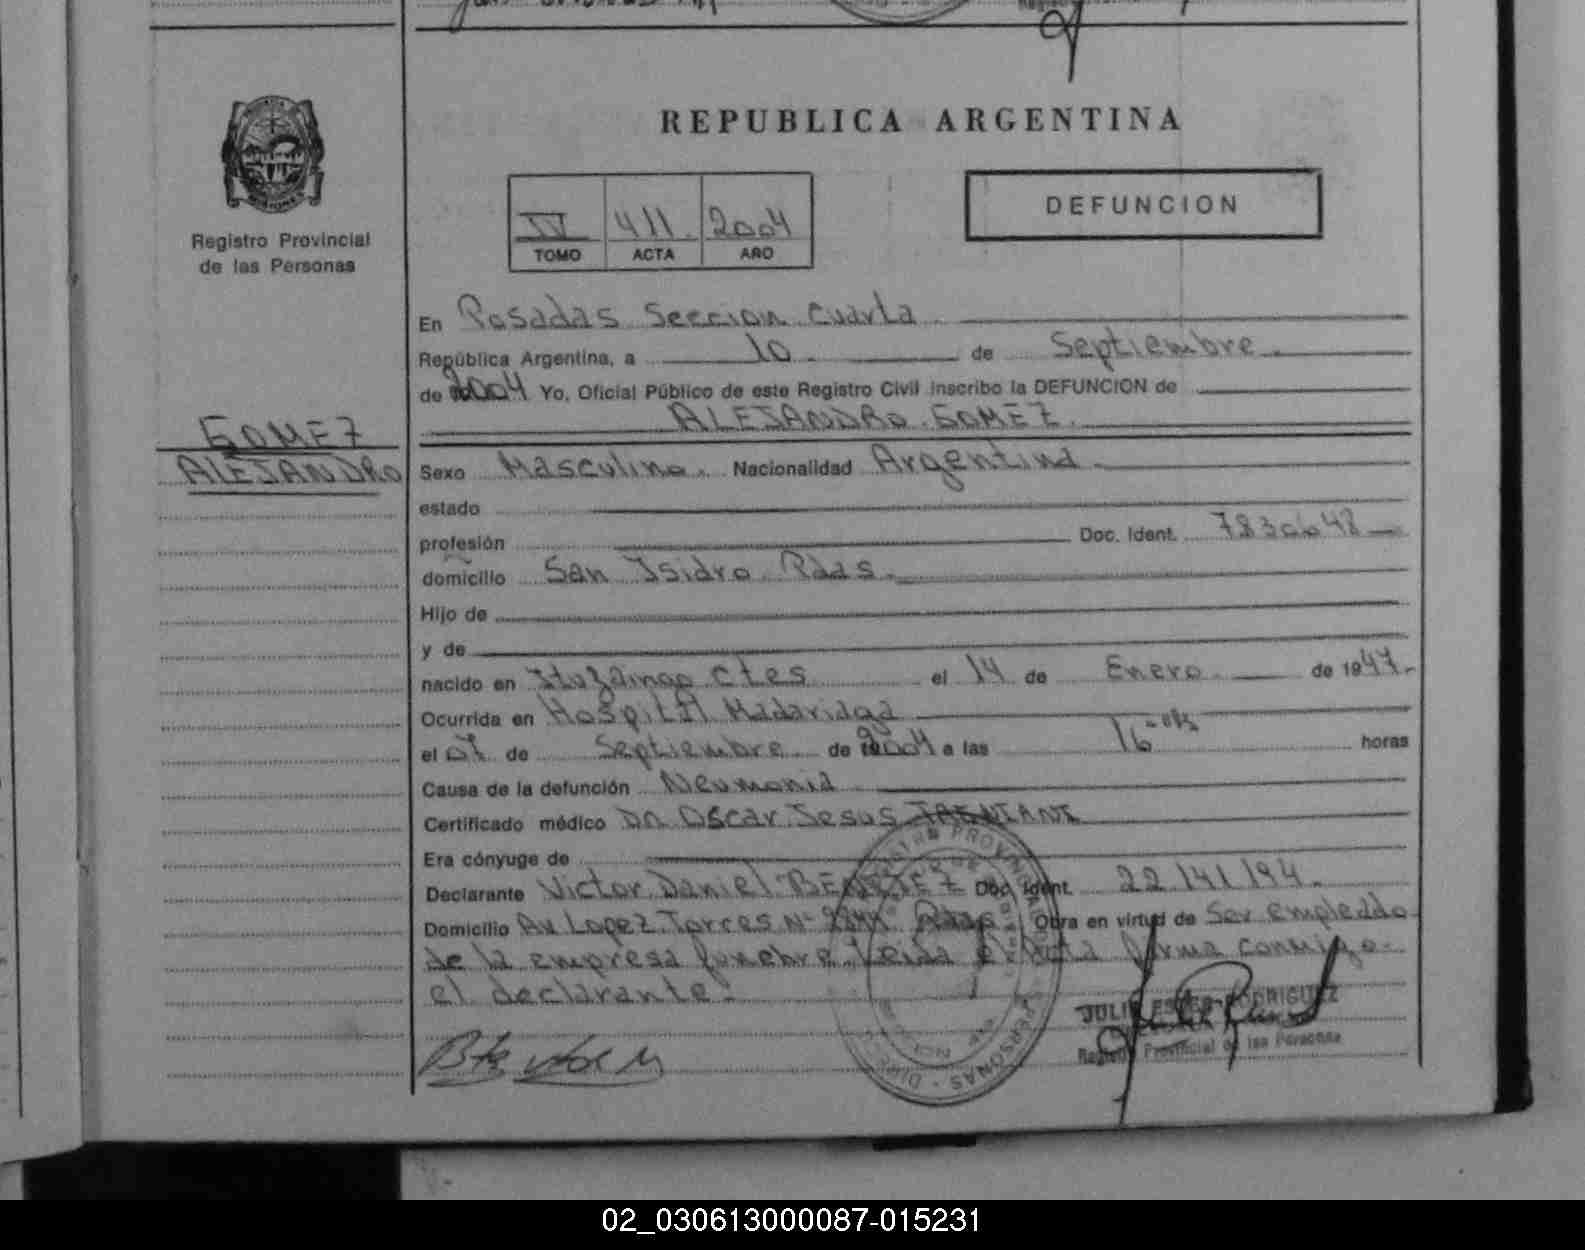 REPUBLICA ARGENTINA
Registro Provincial
de las Personas
IV 411. 2004
TOMO ACTA AÑO
DEFUNCION
En Posadas Seccion Cuarta
República Argentina, a 10 de Septiembre
de 2004 Yo, Oficial Público de este Registro Civil inscribo la DEFUNCION de
ALEJANDRO GOMEZ.
GOMEZ
ALEJANDRO
Sexo Masculino. Nacionalidad Argentina
estado
profesión Doc. Ident. 7830648
domicilio San Isidro Pdas.
Hijo de
y de
nacido en Ituzaingo Ctes el 14 de Enero de 1947.
Ocurrida en Hospital Madariaga
el 07 de Septiembre de 2004 a las 16 horas
Causa de la defunción Neumonia
Certificado médico Dr. Oscar Jesus
Era cónyuge de
Declarante Victor Daniel BENITEZ Doc. Ident. 22.141.194.
Domicilio Av Lopez Torres Nº Pdas Obra en virtud de Ser empleado
de la empresa funebre. Leida el Acta firma conmigo
el declarante.
JULIA ESTER RODRIGUEZ
Registro Provincial de las Personas
02_030613000087-015231